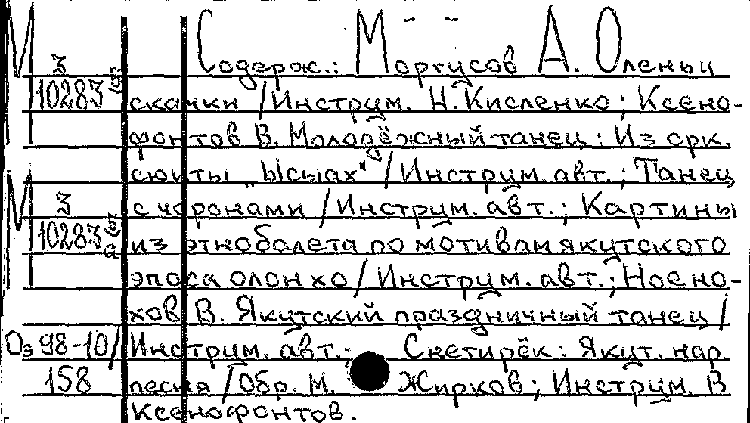 М Содерж.: Моргусов А. Оленьи
3
10283 скачки / Инструм. Н. Кисленко; Ксено-
фонтов В. Молодёжный танец: Из орк.
сюиты „Ысыах“ / Инструм. авт.; Танец
М 3 с чоронами / Инструм. авт.; Картины
10283 из этнобалета по мотивам якутского
эпоса олонхо / Инструм. авт.; Ноено-
хов В. Якутский праздничный танец /
Оз 98-10/ Инструм. авт. Скетирёк: Якут. нар
158 песня / Обр. М. Жирков; Инструм. В
Ксенофонтов.